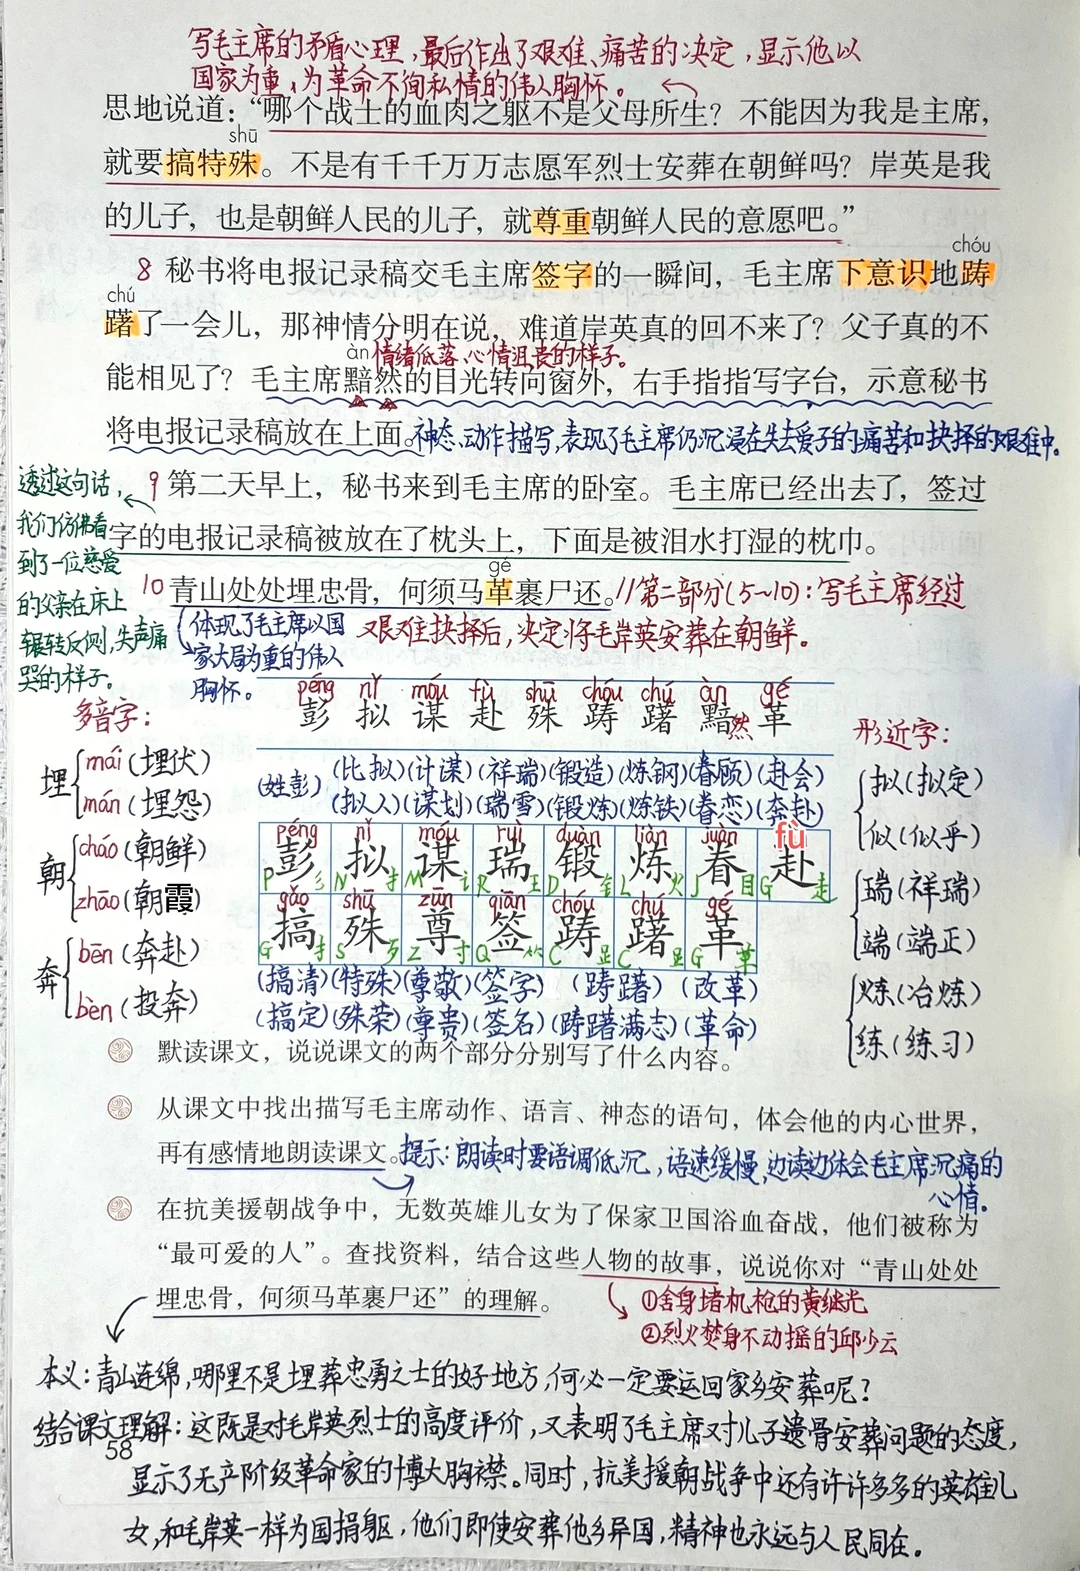 写毛主席的矛盾心理,最后作出了艰难、痛苦的决定,显示他以
国家为重,为革命不徇私情的伟人胸怀。
思地说道:“哪个战士的血肉之躯不是父母所生?不能因为我是主席,
shū
就要搞特殊。不是有千千万万志愿军烈士安葬在朝鲜吗?岸英是我
的儿子,也是朝鲜人民的儿子,就尊重朝鲜人民的意愿吧。”
chóu
8 秘书将电报记录稿交毛主席签字的一瞬间,毛主席下意识地踌
chú
躇了一会儿,那神情分明在说,难道岸英真的回不来了?父子真的不
àn 情绪低落、心情沮丧的样子。
能相见了?毛主席黯然的目光转向窗外,右手指指写字台,示意秘书
将电报记录稿放在上面。神态、动作描写,表现了毛主席仍沉浸在失去爱子的痛苦和抉择的艰难中。
透过这句话,
我们仿佛看
到了一位慈爱
的父亲在床上
辗转反侧,失声痛
哭的样子。
9 第二天早上,秘书来到毛主席的卧室。毛主席已经出去了,签过
字的电报记录稿被放在了枕头上,下面是被泪水打湿的枕巾。
gé
10 青山处处埋忠骨,何须马革裹尸还。//第二部分(5~10):写毛主席经过
艰难抉择后,决定将毛岸英安葬在朝鲜。
体现了毛主席以国
家大局为重的伟人
胸怀。
péng nǐ móu fù shū chóu chú àn gé
彭 拟 谋 赴 殊 踌 躇 黯然 革
多音字:
埋
mái(埋伏)
mán(埋怨)
朝
cháo(朝鲜)
zhāo(朝霞)
奔
bēn(奔赴)
bèn(投奔)
(姓彭)(比拟)(计谋)(祥瑞)(锻造)(炼钢)(眷顾)(赴会)
(拟人)(谋划)(瑞雪)(锻炼)(炼铁)(眷恋)(奔赴)
péng nǐ móu ruì duàn liàn juàn fù
彭 拟 谋 瑞 锻 炼 眷 赴
P 彡 N 扌 M 讠 R 王 D 钅 L 火 J 目 G 走
gǎo shū zūn qiān chóu chú gé
搞 殊 尊 签 踌 躇 革
G 扌 S 歹 Z 寸 Q 𥫗 C 𧾷 C 𧾷 G 革
(搞清)(特殊)(尊敬)(签字)(踌躇)(改革)
(搞定)(殊荣)(尊贵)(签名)(踌躇满志)(革命)
形近字:
拟(拟定)
似(似乎)
瑞(祥瑞)
端(端正)
炼(冶炼)
练(练习)
默读课文,说说课文的两个部分分别写了什么内容。
从课文中找出描写毛主席动作、语言、神态的语句,体会他的内心世界,
再有感情地朗读课文。提示:朗读时要语调低沉,语速缓慢,边读边体会毛主席沉痛的
心情。
在抗美援朝战争中,无数英雄儿女为了保家卫国浴血奋战,他们被称为
“最可爱的人”。查找资料,结合这些人物的故事,说说你对“青山处处
埋忠骨,何须马革裹尸还”的理解。
①舍身堵机枪的黄继光
②烈火焚身不动摇的邱少云
本义:青山连绵,哪里不是埋葬忠勇之士的好地方,何必一定要运回家乡安葬呢?
结合课文理解:这既是对毛岸英烈士的高度评价,又表明了毛主席对儿子遗骨安葬问题的态度,
58
显示了无产阶级革命家的博大胸襟。同时,抗美援朝战争中还有许许多多的英雄儿
女,和毛岸英一样为国捐躯,他们即使安葬他乡异国,精神也永远与人民同在。